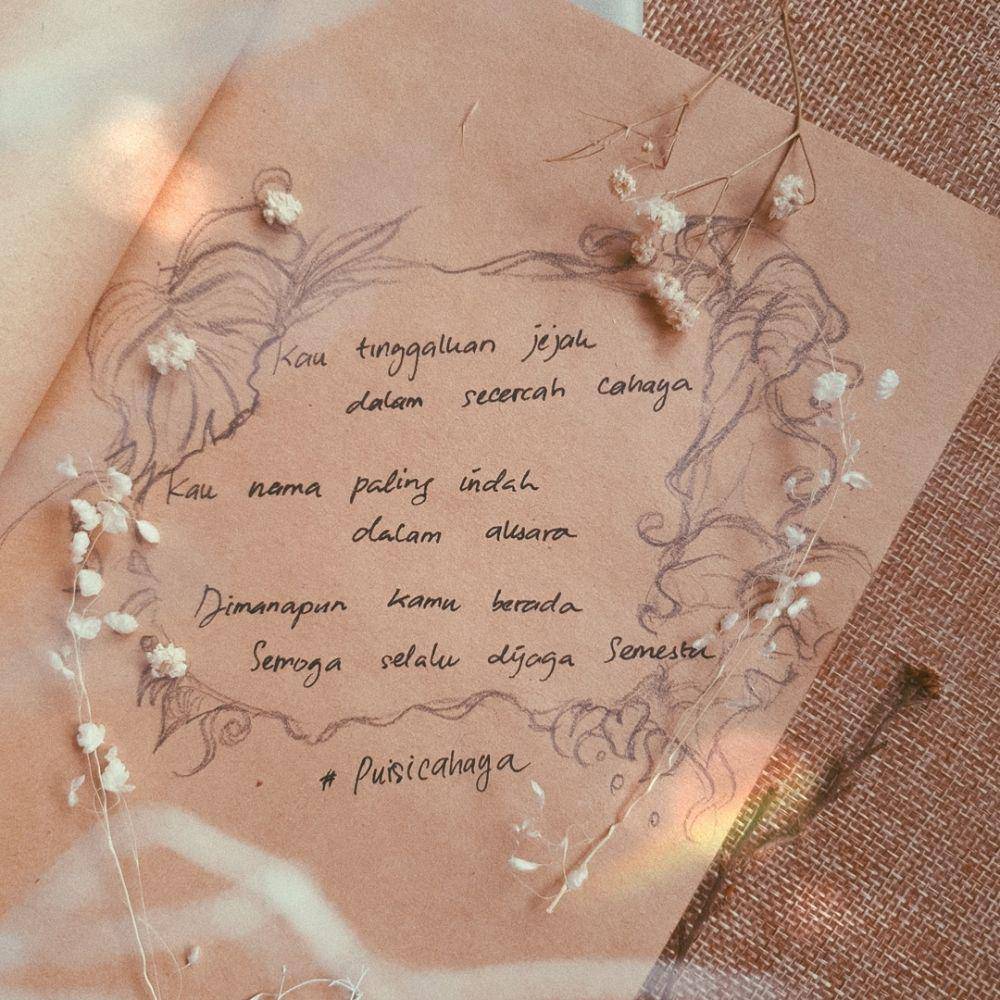 Kau tinggalkan jejak
dalam secercah cahaya
Kau nama paling indah
dalam aksara
Dimanapun kamu berada
Semoga selalu dijaga Semesta
# Puisicahaya